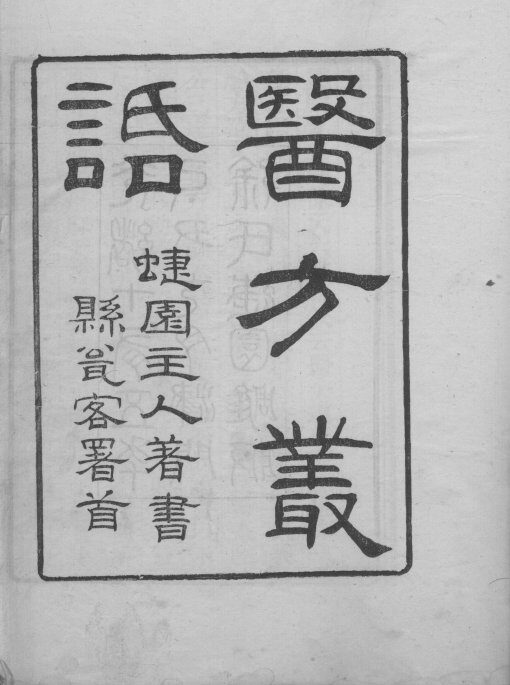 醫方叢話
蜨園主人著書
縣瓮客署首